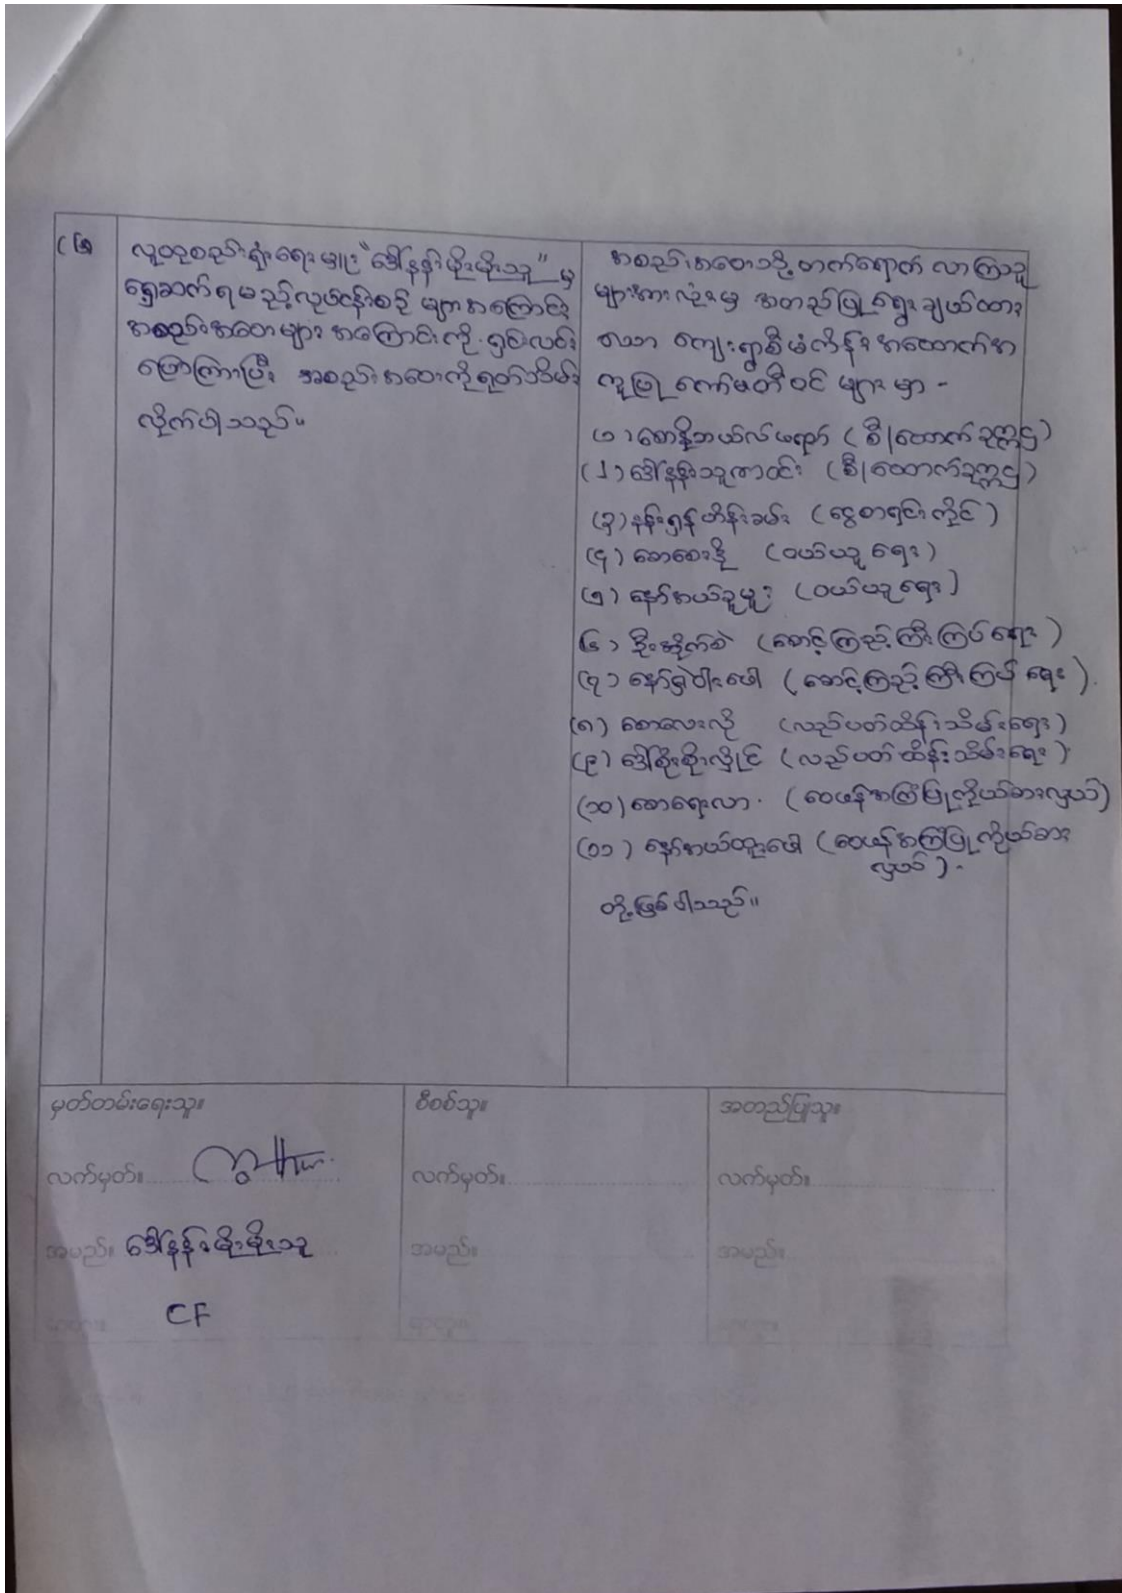 (၆
လူထုစည်းရုံးရေးမှူး "ဒေါ်နန်းမိုးမိုးသူ" မှ
ရှေ့ဆက်ရမည့်လုပ်ငန်းစဉ် များအကြောင်း
အစည်းအဝေးများ အကြောင်းကို ရှင်းလင်း
ပြောကြားပြီး အစည်းအဝေးကိုရုတ်သိမ်း
လိုက်ပါသည်။
အစည်းအဝေးသို့ တက်ရောက် လာကြသူ
များအားလုံးမှ အတည်ပြု ရွေးချယ်ထား
သော ကျေးရွာစီမံကိန်း အထောက်အ
ကူပြု ကော်မတီဝင် များမှာ -
(၁) စောနိုဘယ်လ်ဖရော် (စီ/ထောက်ဥက္ကဋ္ဌ)
(၂) ဒေါ်နန်းသူဇာဝင်း (စီ/ထောက်ဥက္ကဋ္ဌ)
(၃) နန်းရွှန်ဟိန်းခမ်း (ငွေစာရင်းကိုင်)
(၄) စောစေးဒို (ဝယ်ယူရေး)
(၅) နော်အယ်ခူမူး (ဝယ်ယူရေး)
(၆) ဒိုးအိုက်စဲ (စောင့်ကြည့်ကြီးကြပ်ရေး)
(၇) နော်ရှဲဝါးပေါ (စောင့်ကြည့်ကြီးကြပ်ရေး).
(၈) စောလေးလို (လည်ပတ်ထိန်းသိမ်းရေး)
(၉) ဒေါ်စိုးစိုးလှိုင် (လည်ပတ်ထိန်းသိမ်းရေး)
(၁၀) စောရေးလာ. (ဝေဖန်အကြံပြုကိုယ်စားလှယ်)
(၁၁) နော်အယ်ထူးပေါ (ဝေဖန်အကြံပြုကိုယ်စား
လှယ်).
တို့ဖြစ်ပါသည်။
မှတ်တမ်းရေးသူ။
စီစစ်သူ။
အတည်ပြုသူ။
လက်မှတ်။
လက်မှတ်။
လက်မှတ်။
အမည်။ ဒေါ်နန်းမိုးမိုးသူ
အမည်။
အမည်။
CF